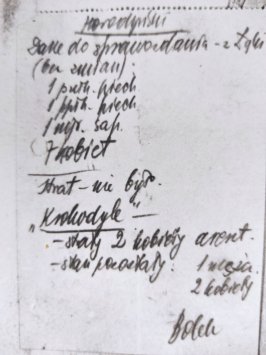 Dane do sprawozdania - z Łąki
(bez zmian).
1 puth. piech.
1 ppłk. piech.
1 mjr. sap.
7 kobiet
Strat - nie było.
"Krokodyle" -
- stały 2 kobiety areszt.
- stan pozostały: 1 mężcz.
2 kobiety
Bolek